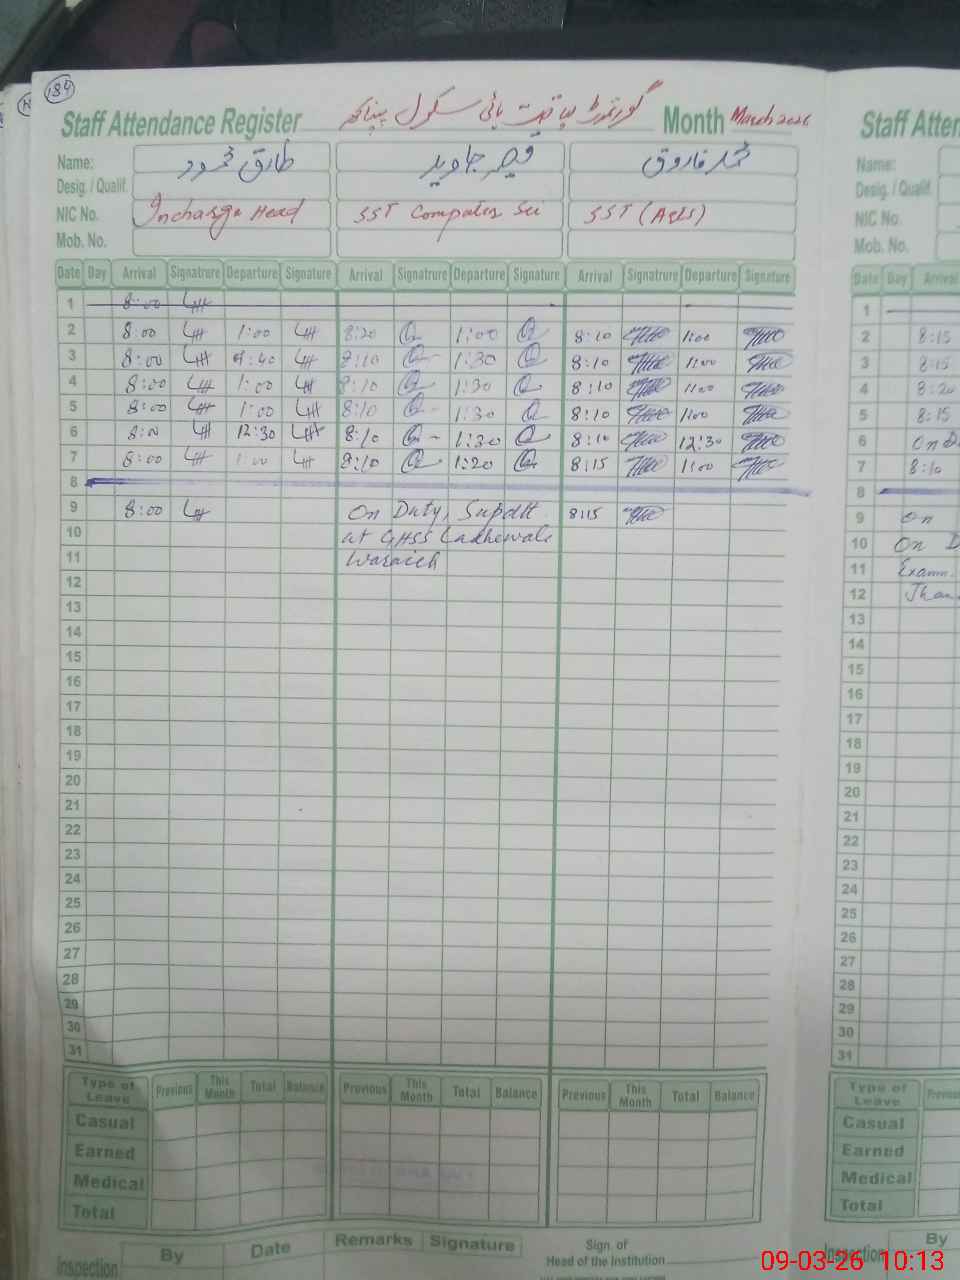 184
Staff Attendance Register گورنمنٹ ہائی سکول Month March 2026
Name: طارق محمود قیصر جاوید محمد فاروق
Desig. / Qualif.
NIC No. Incharge Head SST Computer Sci SST (Arts)
Mob. No.
Date Day Arrival Signatrure Departure Signature Arrival Signatrure Departure Signature Arrival Signatrure Departure Signature
1 8:00
2 8:00 1:00 8:20 1:00 8:10 1:00
3 8:00 8:10 1:30 8:10 1:00
4 8:00 1:00 8:10 1:30 8:10 1:00
5 8:00 1:00 8:10 1:30 8:10 1:00
6 12:30 8:10 1:30 8:10 12:30
7 8:00 1:00 8:10 1:20 8:15 1:00
8
9 8:00 On Duty, Supdtt 8:15
10 at GHSS Ladhewala
11 Waraich
12
13
14
15
16
17
18
19
20
21
22
23
24
25
26
27
28
29
30
31
Type of Leave Previous This Month Total Balance Previous This Month Total Balance Previous This Month Total Balance
Casual
Earned
Medical
Total
Inspection By Date Remarks Signature Sign. of Head of the Institution
Staff Atten
Name:
Desig. / Qualif.
NIC No.
Mob. No.
Date Day Arrival
1
2 8:15
3 8:15
4 8:20
5 8:15
6 On D
7 8:10
8
9 On
10 On D
11 Exam.
12
13
14
15
16
17
18
19
20
21
22
23
24
25
26
27
28
29
30
31
Type of Leave Previous
Casual
Earned
Medical
Total
Inspection By
09-03-26 10:13